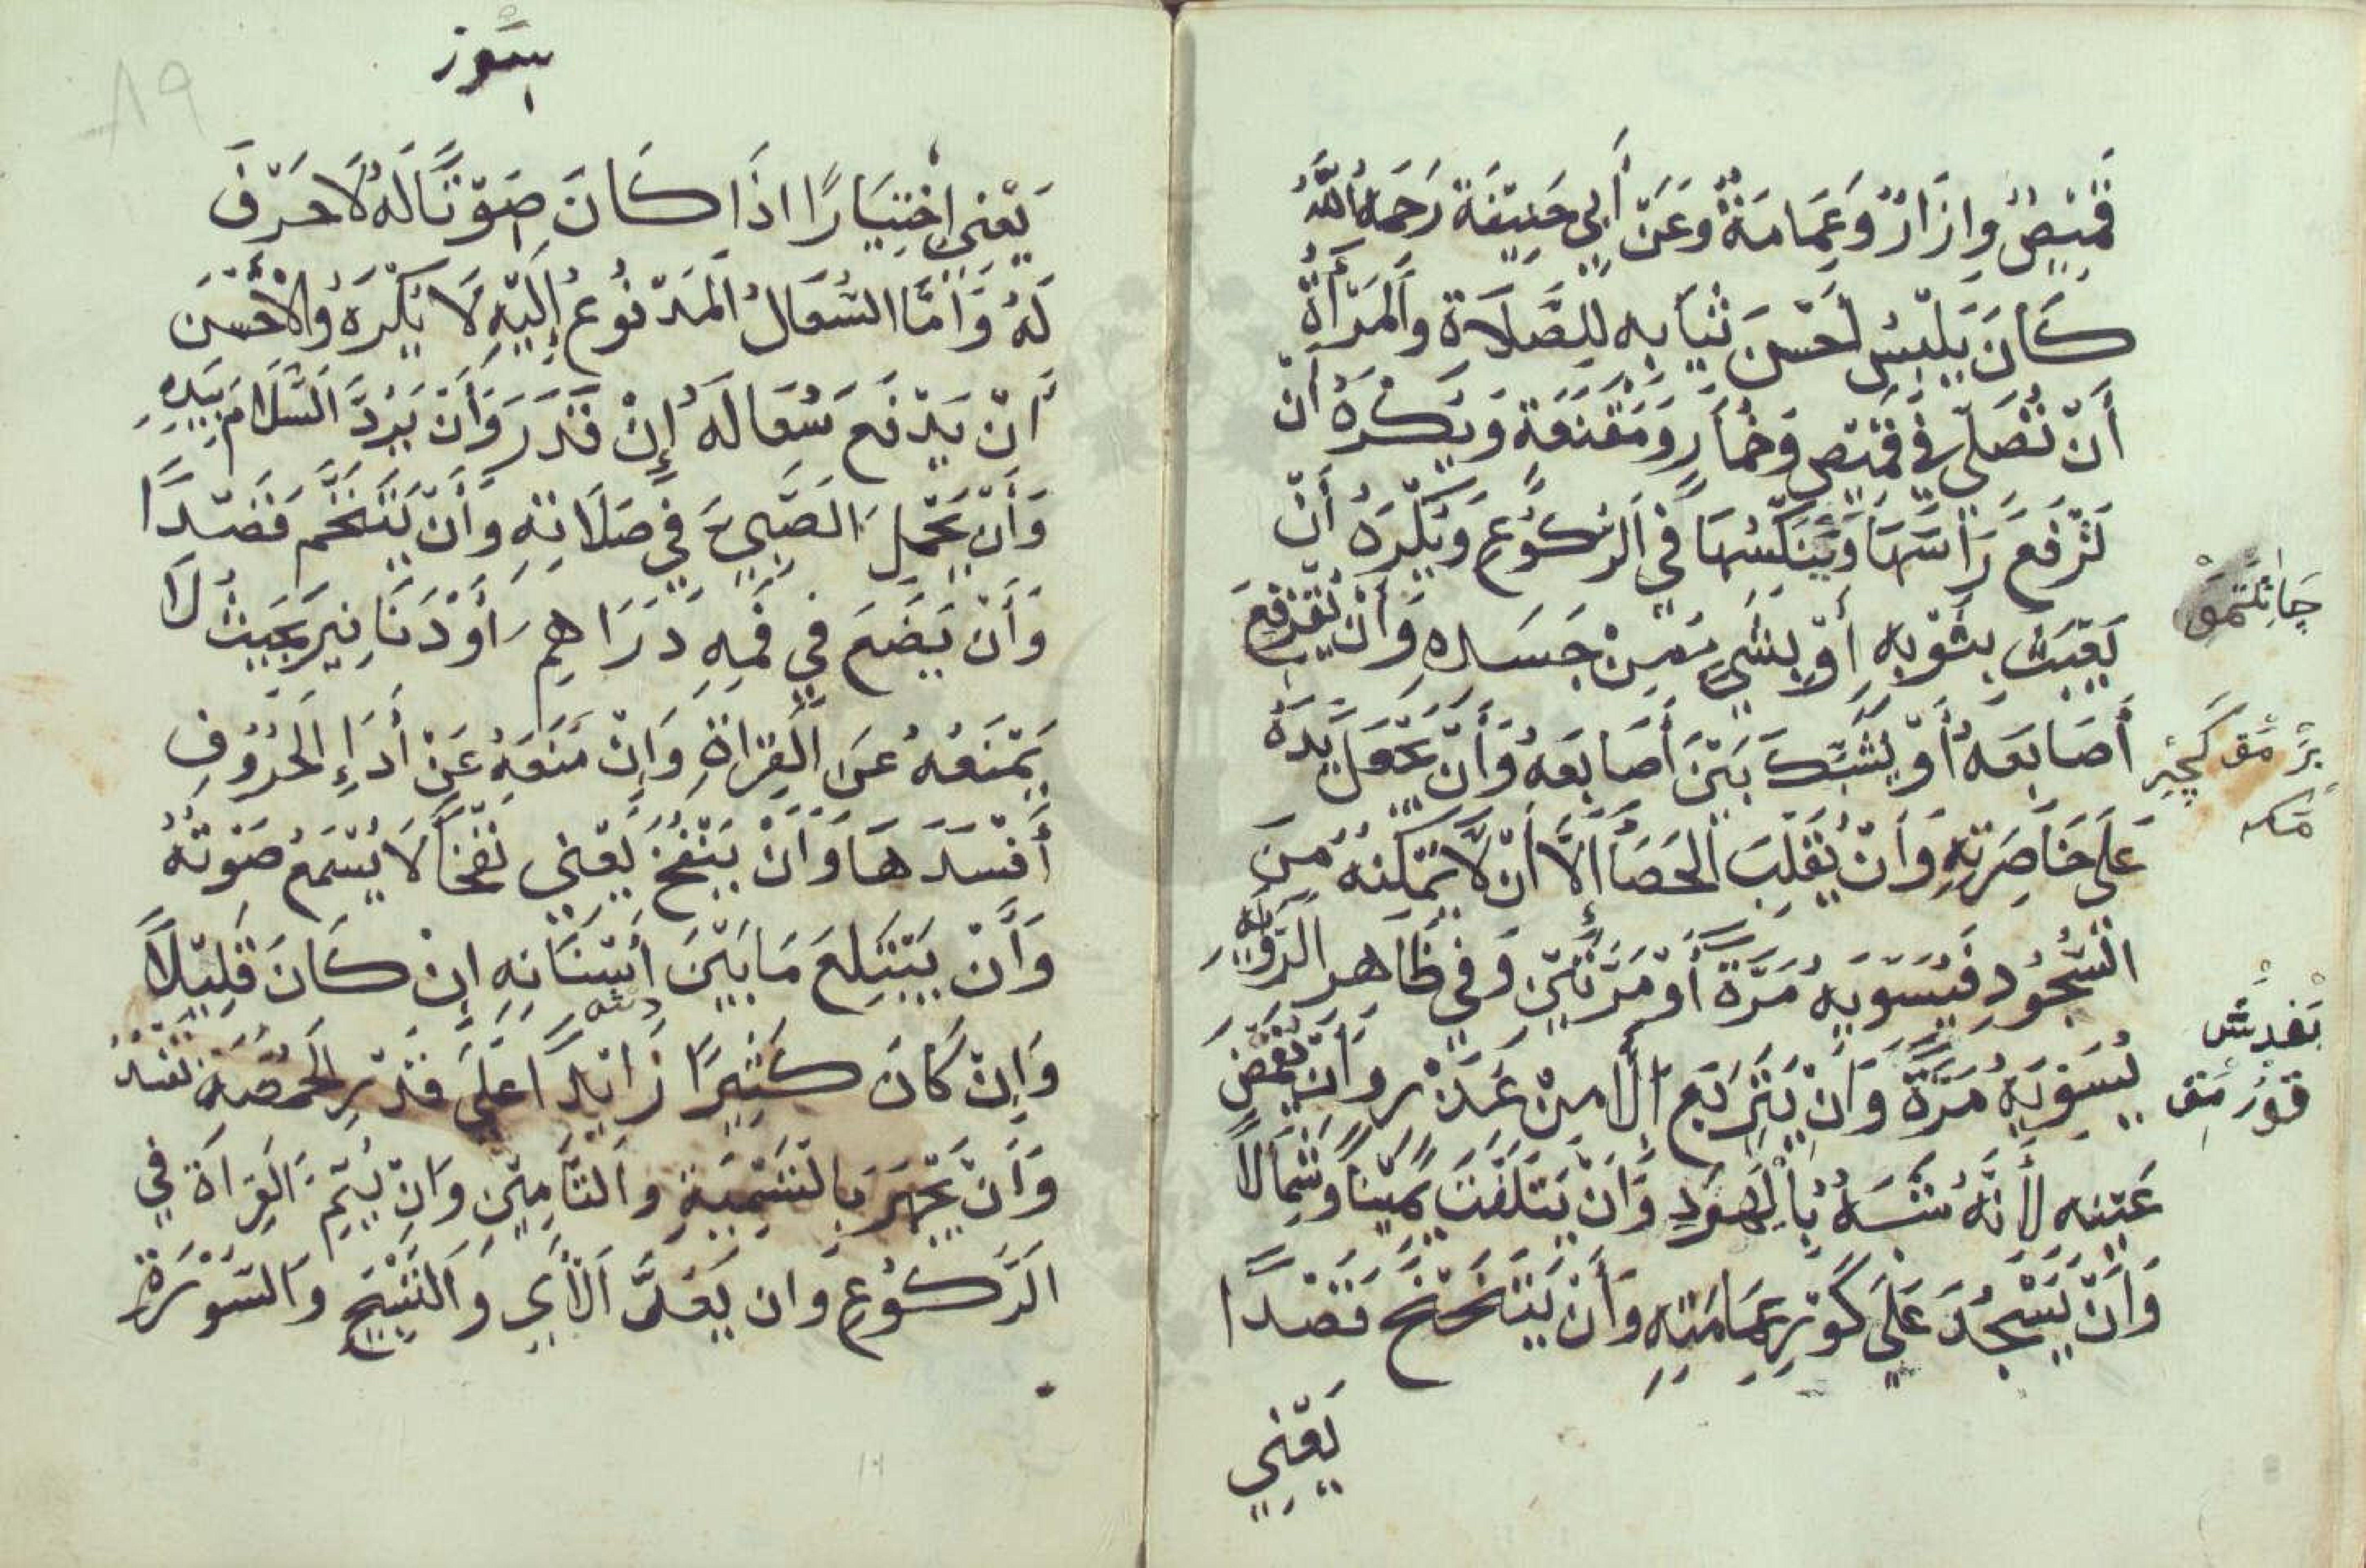 قَمِيصٌ وَاِزَارٌ وَعِمَامَةٌ وَعَنْ أَبِي حَنِيفَةَ رَحِمَهُ اللّٰهُ
كَانَ يَلْبِسُ أَحْسَنَ ثِيَابِهِ لِلصَّلَاةِ وَالْمَرْأَةُ
أَنْ تُصَلِّيَ فِي قَمِيصٍ وَخِمَارٍ وَمِقْنَعَةٍ وَيُكْرَهُ أَنْ
تَرْفَعَ رَأْسَهَا وَيُنَكِّسُهَا فِي الرُّكُوعِ وَيُكْرَهُ أَنْ
يَعْبَثَ بِثَوْبِهِ أَوْ بِشَيْءٍ مِنْ جَسَدِهِ وَأَنْ يُفَرْقِعَ
أَصَابِعَهُ أَوْ يُشَبِّكَ بَيْنَ أَصَابِعِهِ وَأَنْ يَجْعَلَ يَدَهُ
عَلَى خَاصِرَتِهِ وَأَنْ يُقَلِّبَ الْحَصَا اِلَّا أَنْ لَا يُمَكِّنَهُ مِنَ
السُّجُودِ فَيُسَوِّيهِ مَرَّةً أَوْ مَرَّتَيْنِ وَفِي ظَاهِرِ الرِّوَايَةِ
يُسَوِّيهِ مَرَّةً وَأَنْ يَتَرَبَّعَ اِلَّا مِنْ عُذْرٍ وَأَنْ يُغَمِّضَ
عَيْنَيْهِ لِأَنَّهُ تَشَبُّهٌ بِالْيَهُودِ وَأَنْ يَتَلَفَّتَ يَمِينًا وَشِمَالًا
وَأَنْ يَسْجُدَ عَلَى كَوْرِ عِمَامَتِهِ وَأَنْ يَتَنَحْنَحَ قَصْدًا
يَعْنِي
يَعْنِي اِخْتِيَارًا اِذَا كَانَ صَوْتًا لَهُ لَا حَرْفَ
لَهُ وَأَمَّا السُّعَالُ الْمَدْفُوعُ إِلَيْهِ لَا يُكْرَهُ وَالْأَحْسَنُ
أَنْ يَدْفَعَ سُعَالَهُ إِنْ قَدَرَ وَأَنْ يَرُدَّ السَّلَامَ بِيَدِهِ
وَأَنْ يَحْمِلَ الصَّبِيَّ فِي صَلَاتِهِ وَأَنْ يَتَنَخَّمَ قَصْدًا
وَأَنْ يَضَعَ فِي فَمِهِ دَرَاهِمَ أَوْ دَنَانِيرَ بِحَيْثُ لَا
يَمْنَعُهُ عَنِ الْقِرَاةِ وَاِنْ مَنَعَهُ عَنْ أَدَاءِ الْحُرُوفِ
أَفْسَدَهَا وَأَنْ يَنْفُخَ يَعْنِي نَفْخًا لَا يُسْمَعُ صَوْتُهُ
وَأَنْ يَبْتَلِعَ مَا بَيْنَ أَسْنَانِهِ اِنْ كَانَ قَلِيلًا
وَاِنْ كَانَ كَثِيرًا زَائِدًا عَلَى قَدْرِ الْحِمَّصَةِ تُفْسِدُ
وَأَنْ يَجْهَرَ بِالتَّسْمِيَةِ وَالتَّأْمِينِ وَأَنْ يُتِمَّ الْقِرَاةَ فِي
الرُّكُوعِ وَاَنْ يَعُدَّ الْآيَ وَالتَّسْبِيحَ وَالسُّورَةَ